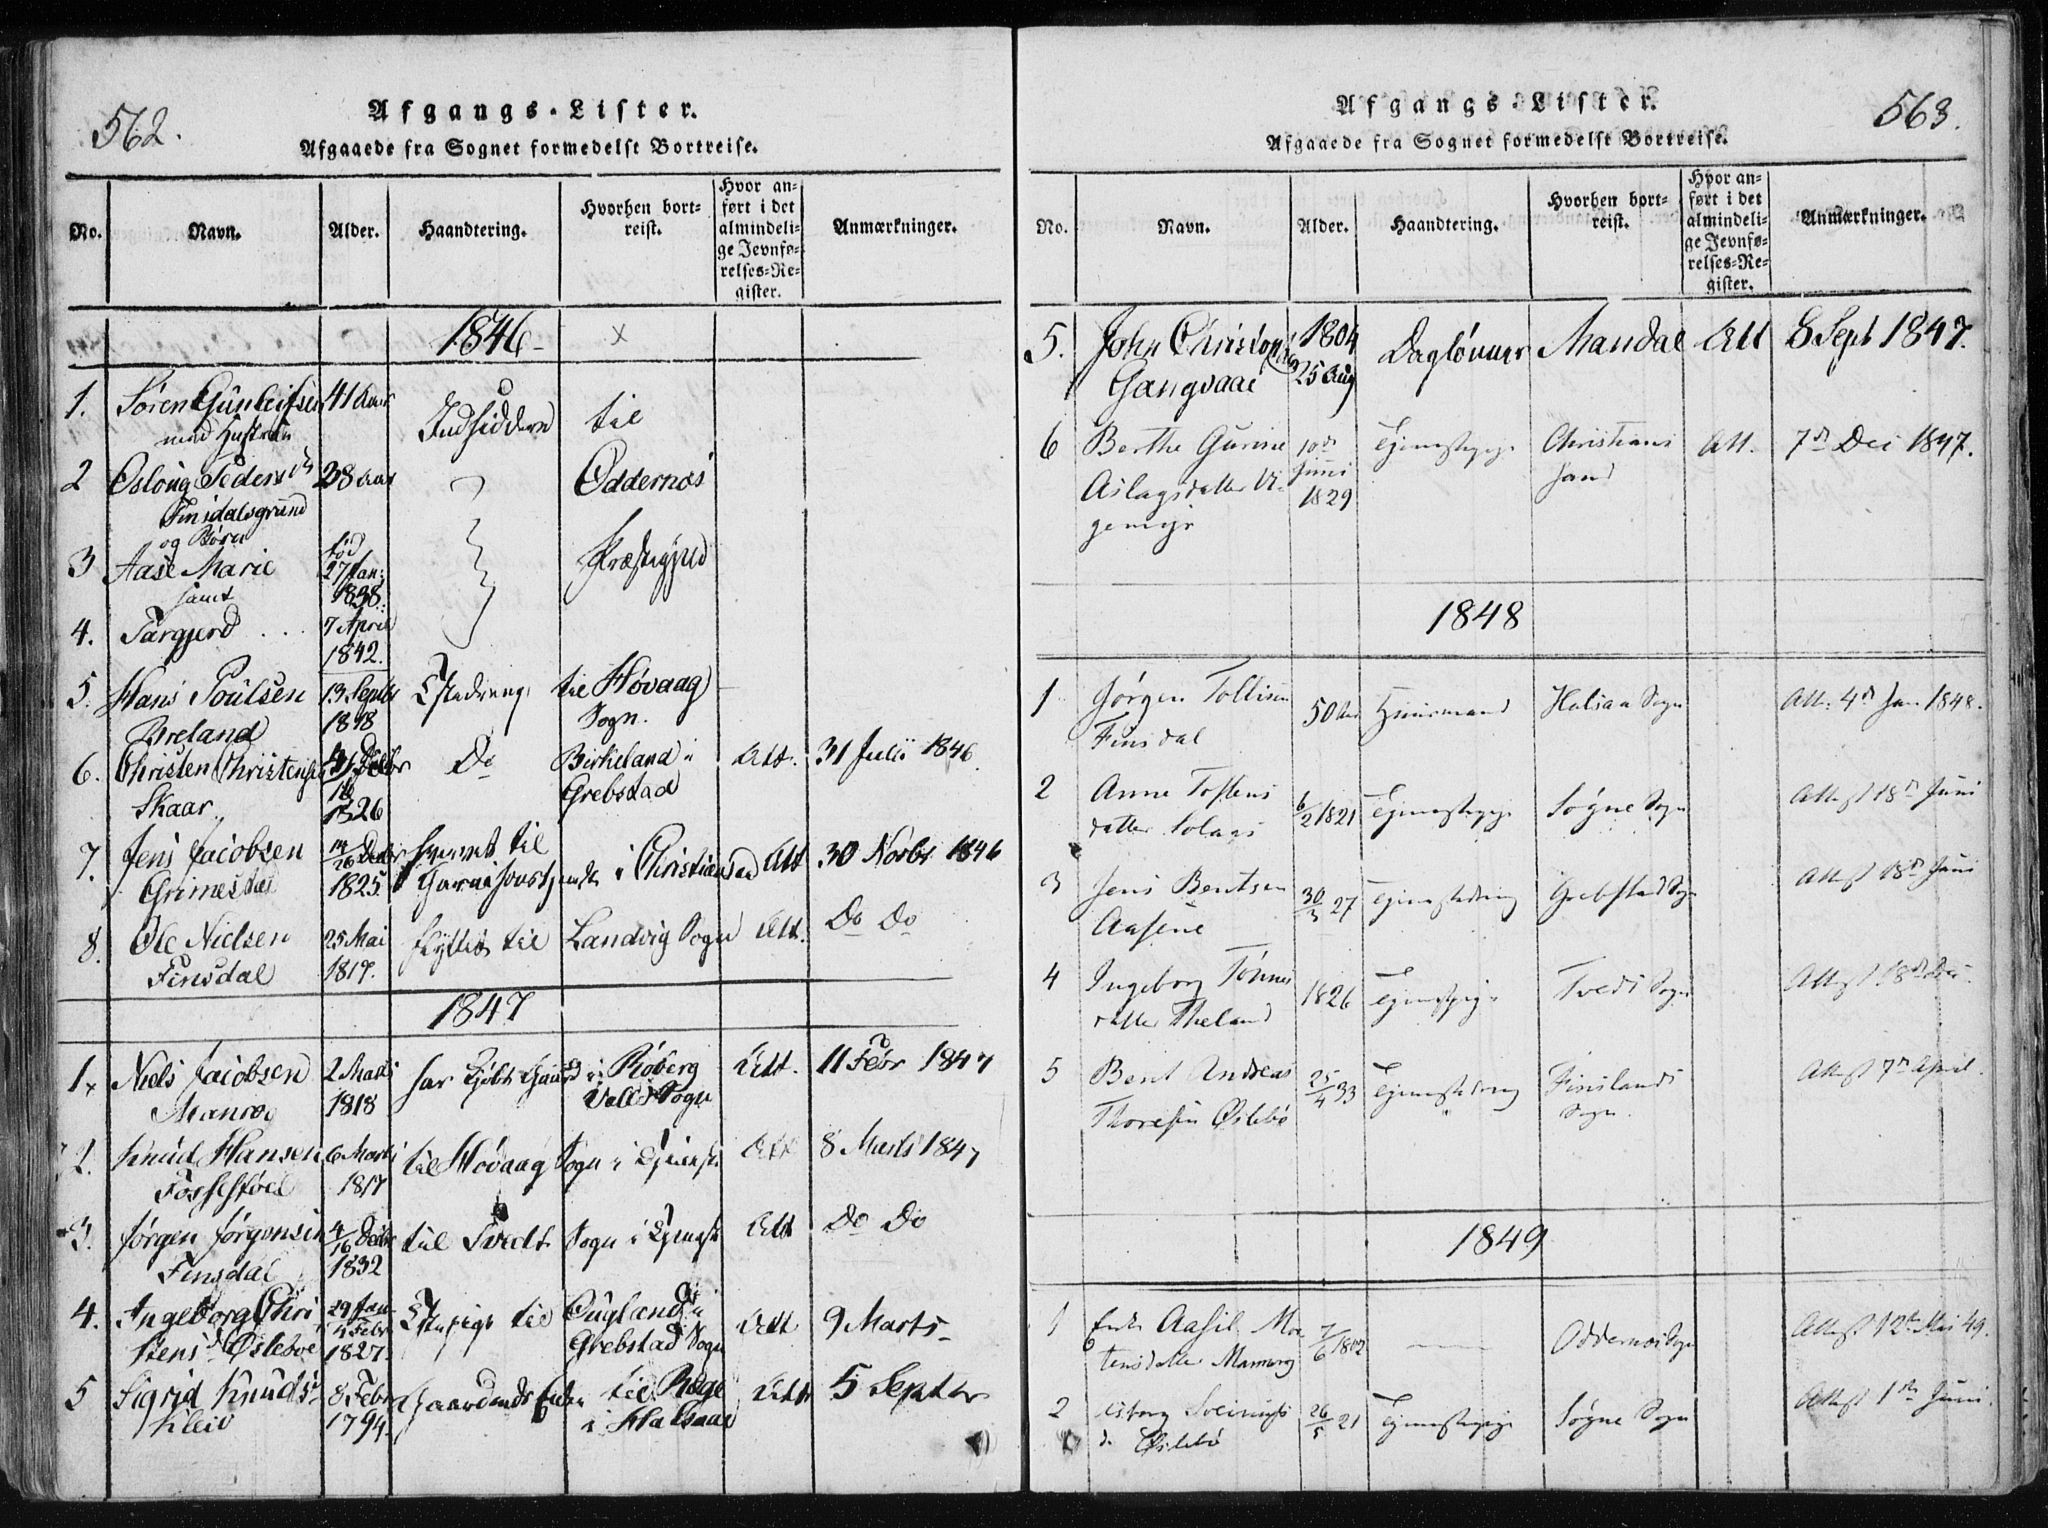 562.
Afgangs-Lister.
Afgaaede fra Sognet formedelst Bortreise.
No. Navn. Alder. Haandtering. Hvorhen bortreist. Hvor anført i det almindelige Jevnførelses-Register. Anmærkninger.
1846
1. Søren Gunleifsen 41 Aar Indsiddere til
med Hustrue
2 Osloug Peders 38 Aar Oddernes
Finsdalsgrund
og Børn
3 Aase Marie født 27 Jan: 1838. Præstegjeld
samt
4. Targjerd 7 April 1842.
5. Hans Poulsen 13 Septbr til Høvaag
Breland 1818 Sogn.
6. Christen Christens Do Birkeland i Att. 31 Julii 1846
Skaar 1826 Grebstad
7. Jens Jacobsen 14/26 Decbr hvervet til
Grimesdal 1825 Garnisons i Christiansand Att 30 Novbr 1846
8. Ole Nielsen 25 Mai flyttet til Landvig Sogn Att. Do Do
Finsdal 1819.
1847
1. Niels Jacobsen 2 Marts har kjøbt Gaard i Røberg Att. 11 Febr 1847
1818 Valle Sogn
2. Knud Hansen 6 Marts til Høvaag Sogn i Tjeneste Att 8 Marts 1847
Fossestøel 1817
3. Jørgen Jørgensen 4/16 Decbr til Tvedt Sogn i Tjenest Att Do Do
Finsdal 1832
4. Ingeborg Chri 29 Jan Tstepige til Ougland i Att 9 Marts
stens d Øslebøe 4 Febr 1827. Grebstad Sogn
5 Sigrid Knuds 8 Febr Gaardmands Enke til Røge Att 5 Septbr
Kleiv 1794. i Halsaae
563.
Afgangs-Lister.
Afgaaede fra Sognet formedelst Bortreise.
No. Navn. Alder. Haandtering. Hvorhen bortreist. Hvor anført i det almindelige Jevnførelses-Register. Anmærkninger.
5. John Christens 1804 Daglønner Mandal Att 8 Sept 1847.
Gangvaae 25 Aug
6 Berthe Gurine 10de Tjenestepige Christian Att. 7de Dec 1847.
Aslagsdatter Vi- Juni sand
gemyr 1829
1848
1 Jørgen Tollisen 50 Aar Huusmand Halsaa Sogn Att. 4de Jan 1848.
Finsdal
2 Anne Tostens 6/2 1821 Tjenestepige Søgne Sogn Attest 18de Juni
datter
3 Jens Bentsen 30/3 27 Tjenestedreng Grebstad Sogn Attest 18de Juni
Aasene
4 Ingeborg Tønnes 1826 Tjenestepige Tveds Sogn Attest 18de
datter
5 Bent Andreas 25/4 33 Tjenestedreng Finslands Attest 7de April.
Thoresen Øslebø Sogn.
1849
1 Enke Aasil Mor 7/6 1802 Oddernes Sogn Attest 12te Mai 49.
tensdatter
2 26/5 21 Tjenestepige Søgne Sogn Attest 1ste Juni.
d. Øslebø